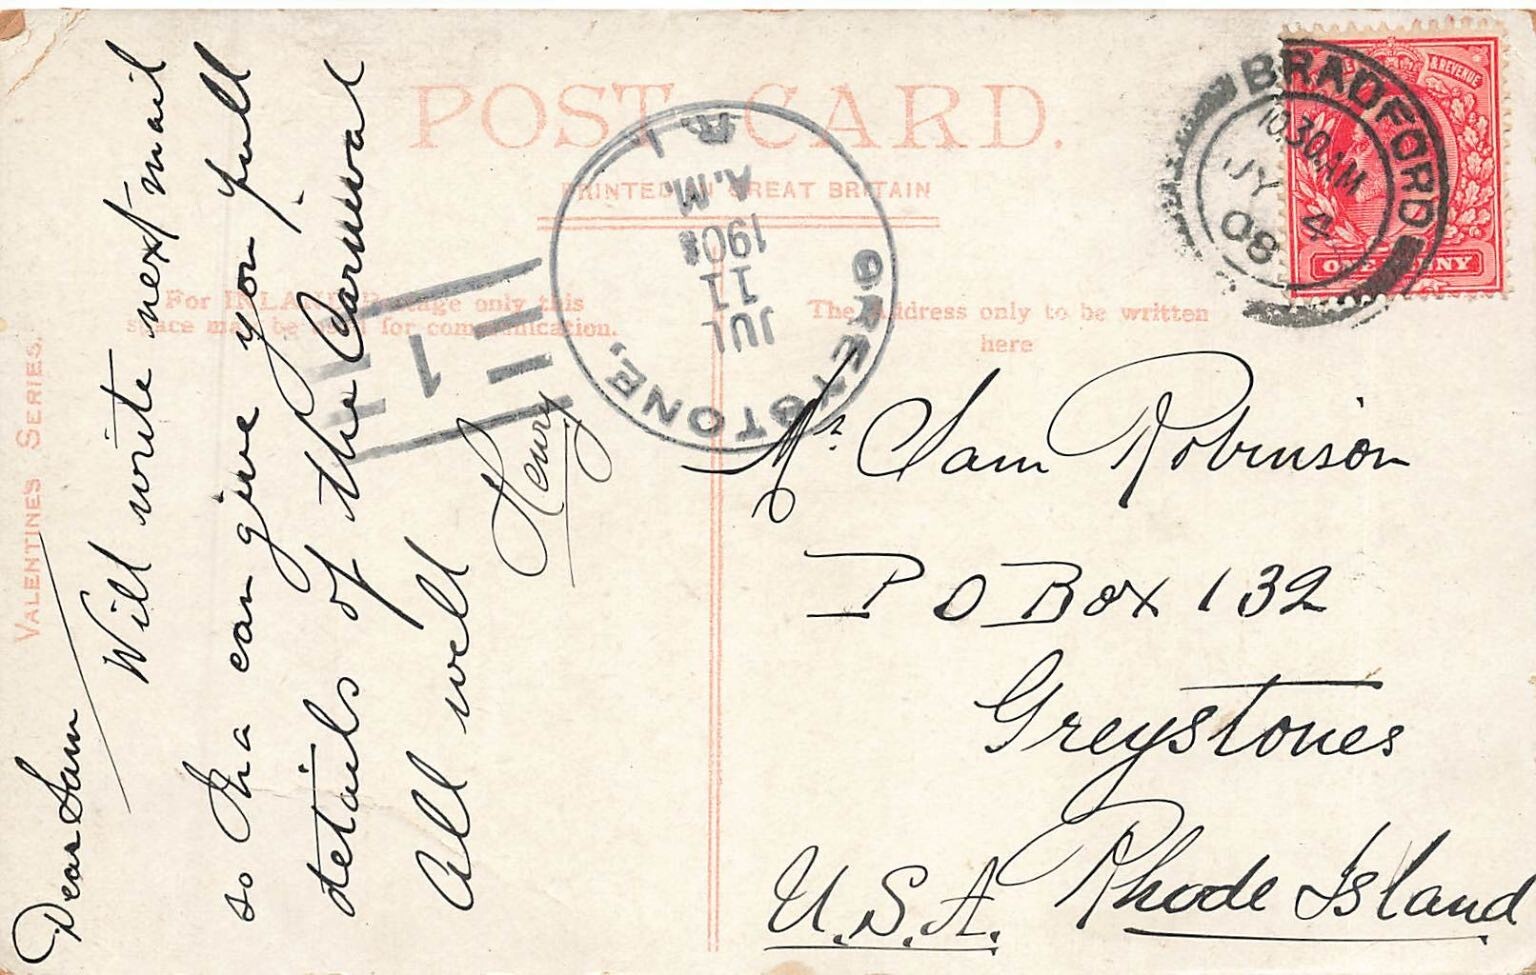 POST CARD.
PRINTED IN GREAT BRITAIN
For INLAND Postage only this
space may be used for communication.
The Address only to be written
here
VALENTINES SERIES.
BRADFORD
10.30AM
JY 4
08
& REVENUE
ONE PENNY
GREYSTONE,
JUL
11
1908
A.M.
R.I.
1
Dear Sam
Will write next mail
so tha can give you full
details of the Carnival
All well
Henry
Mr Sam Robinson
P O Box 132
Greystones
Rhode Island
U.S.A.